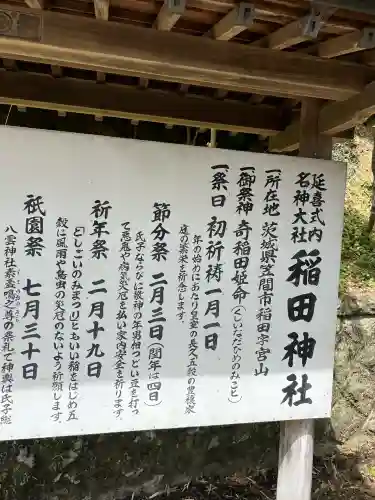 延喜式内
名神大社
稲田神社
一所在地 茨城県笠間市稲田字宮山
一御祭神 奇稲田姫命(くしいなだひめのみこと)
一祭日 初祈祷 一月一日
年の始めにあたり皇室の長久五穀の豊穣家
庭の繁栄を祈念します。
節分祭 二月三日(閏年は四日)
氏子ならびに敬神の年男相つどい豆を打っ
て悪魔や病気災厄を払い家内安全を祈ります。
祈年祭 二月十九日
(としごいのみまつり)ともいい稲をはじめ五
穀に風雨や鳥虫の災厄のないよう祈願します。
祇園祭 七月三十日
八雲神社素盞嗚之尊の祭礼で神輿は氏子総